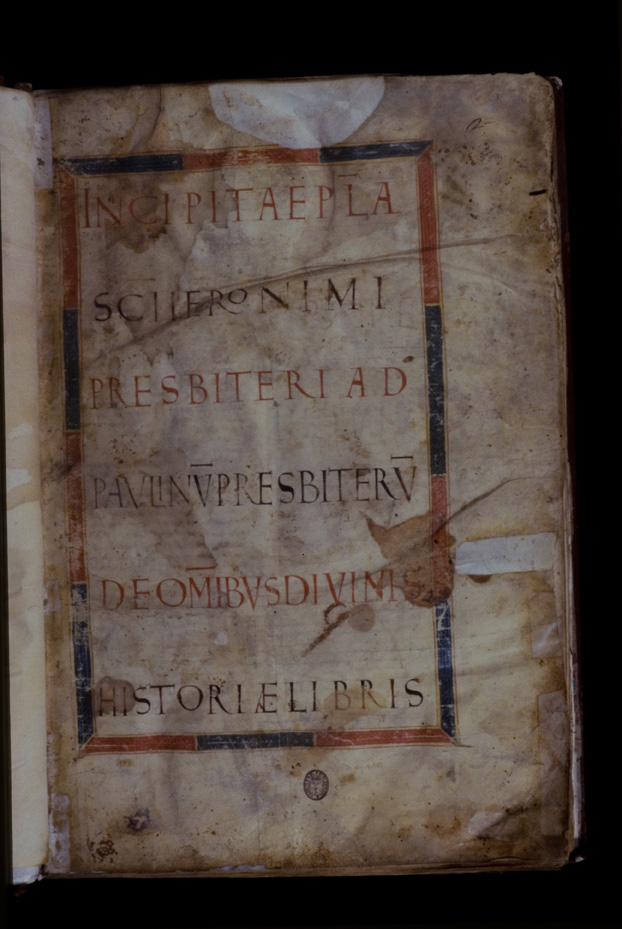 INCIPIT AEPL̅A
SC̅I IERONIMI
PRESBITERI AD
PAVLINV̅ PRESBITERV̅
DE OM̅IBVS DIVINIS
HISTORIÆ LIBRIS